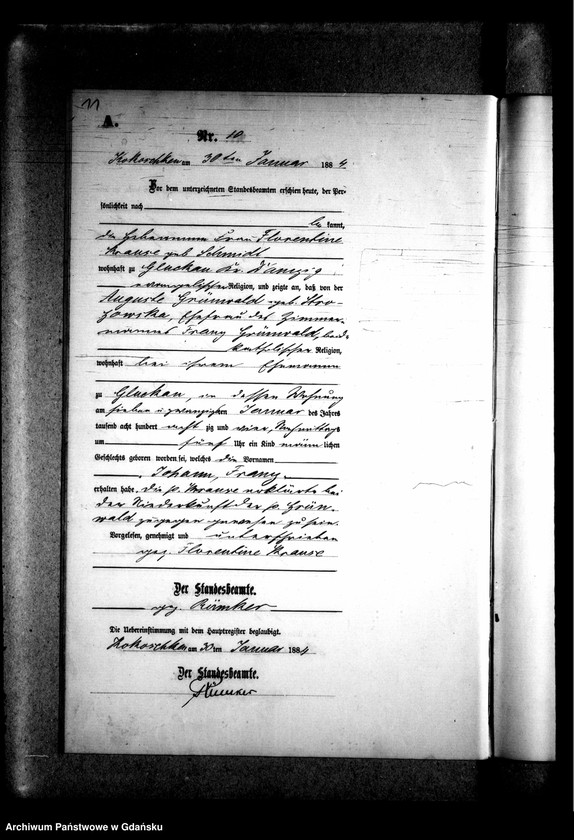 11
A.
Nr. 10
Kokoschken am 30ten Januar 1884
Vor dem unterzeichneten Standesbeamten erschien heute, der Per-
sönlichkeit nach
be kannt,
die Hebamme Frau Florentine
Krause geb. Schmidt
wohnhaft zu Gluckau Kr. Danzig
evangelischer Religion, und zeigte an, daß von der
Auguste Grünwald geb. Stro-
zowska, Ehefrau des Zimmer-
mannes Franz Grünwald, beide
katholischer Religion,
wohnhaft bei ihrem Ehemann
zu Gluckau, in dessen Wohnung
am sieben u. zwanzigsten Januar des Jahres
tausend acht hundert acht zig und vier, Nachmittags
um fünf Uhr ein Kind männ lichen
Geschlechts geboren worden sei, welches die Vornamen
Johann, Franz
erhalten habe. Die p. Krause erklärte bei
der Niederkunft der p. Grün-
wald zugegen gewesen zu sein.
Vorgelesen, genehmigt und unterschrieben
gez. Florentine Krause
Der Standesbeamte.
gez. Rümker
Die Uebereinstimmung mit dem Hauptregister beglaubigt.
Kokoschken am 30ten Januar 1884
Der Standesbeamte.
Rümker
Archiwum Państwowe w Gdańsku